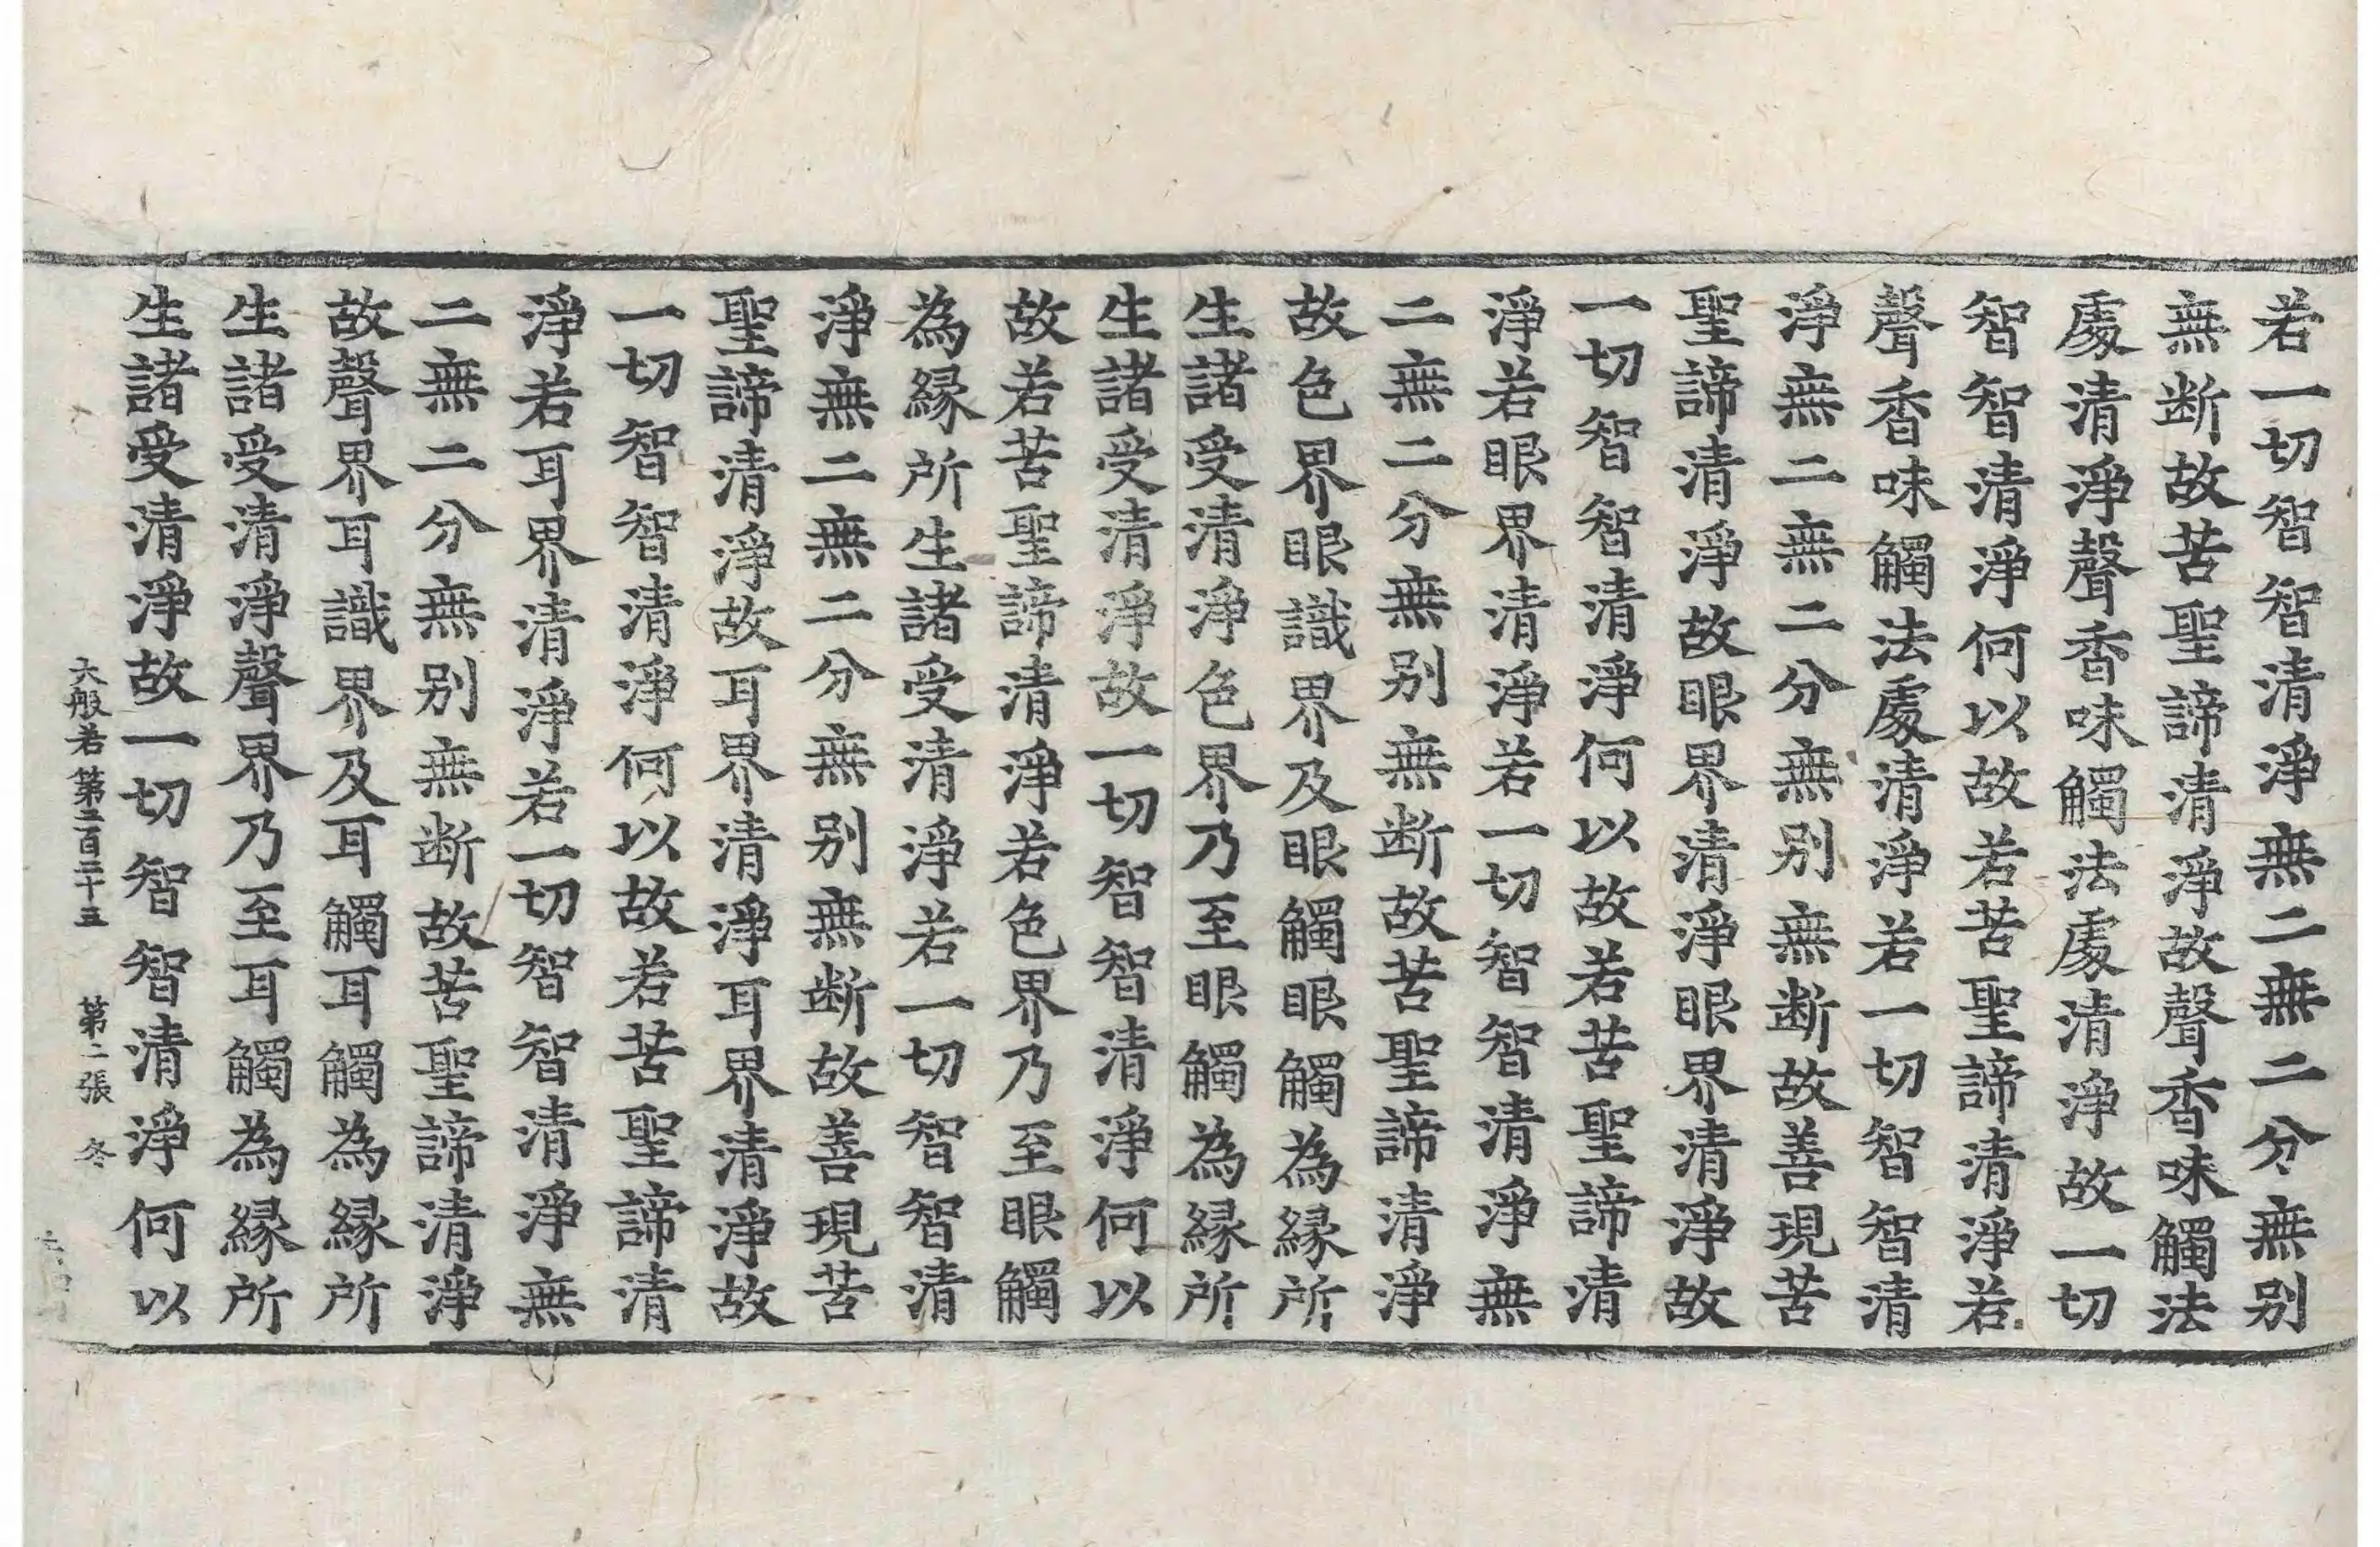 若一切智智清淨無二無二分無别
無断故苦聖諦清淨故聲香味觸法
處清淨聲香味觸法處清淨故一切
智智清淨何以故若苦聖諦清淨若
聲香味觸法處清淨若一切智智清
淨無二無二分無别無断故善現苦
聖諦清淨故眼界清淨眼界清淨故
一切智智清淨何以故若苦聖諦清
淨若眼界清淨若一切智智清淨無
二無二分無别無断故苦聖諦清淨
故色界眼識界及眼觸眼觸為緣所
生諸受清淨色界乃至眼觸為緣所
生諸受清淨故一切智智清淨何以
故若苦聖諦清淨若色界乃至眼觸
為緣所生諸受清淨若一切智智清
淨無二無二分無别無断故善現苦
聖諦清淨故耳界清淨耳界清淨故
一切智智清淨何以故若苦聖諦清
淨若耳界清淨若一切智智清淨無
二無二分無别無断故苦聖諦清淨
故聲界耳識界及耳觸耳觸為緣所
生諸受清淨聲界乃至耳觸為緣所
生諸受清淨故一切智智清淨何以
大般若第二百三十五 第二張 冬